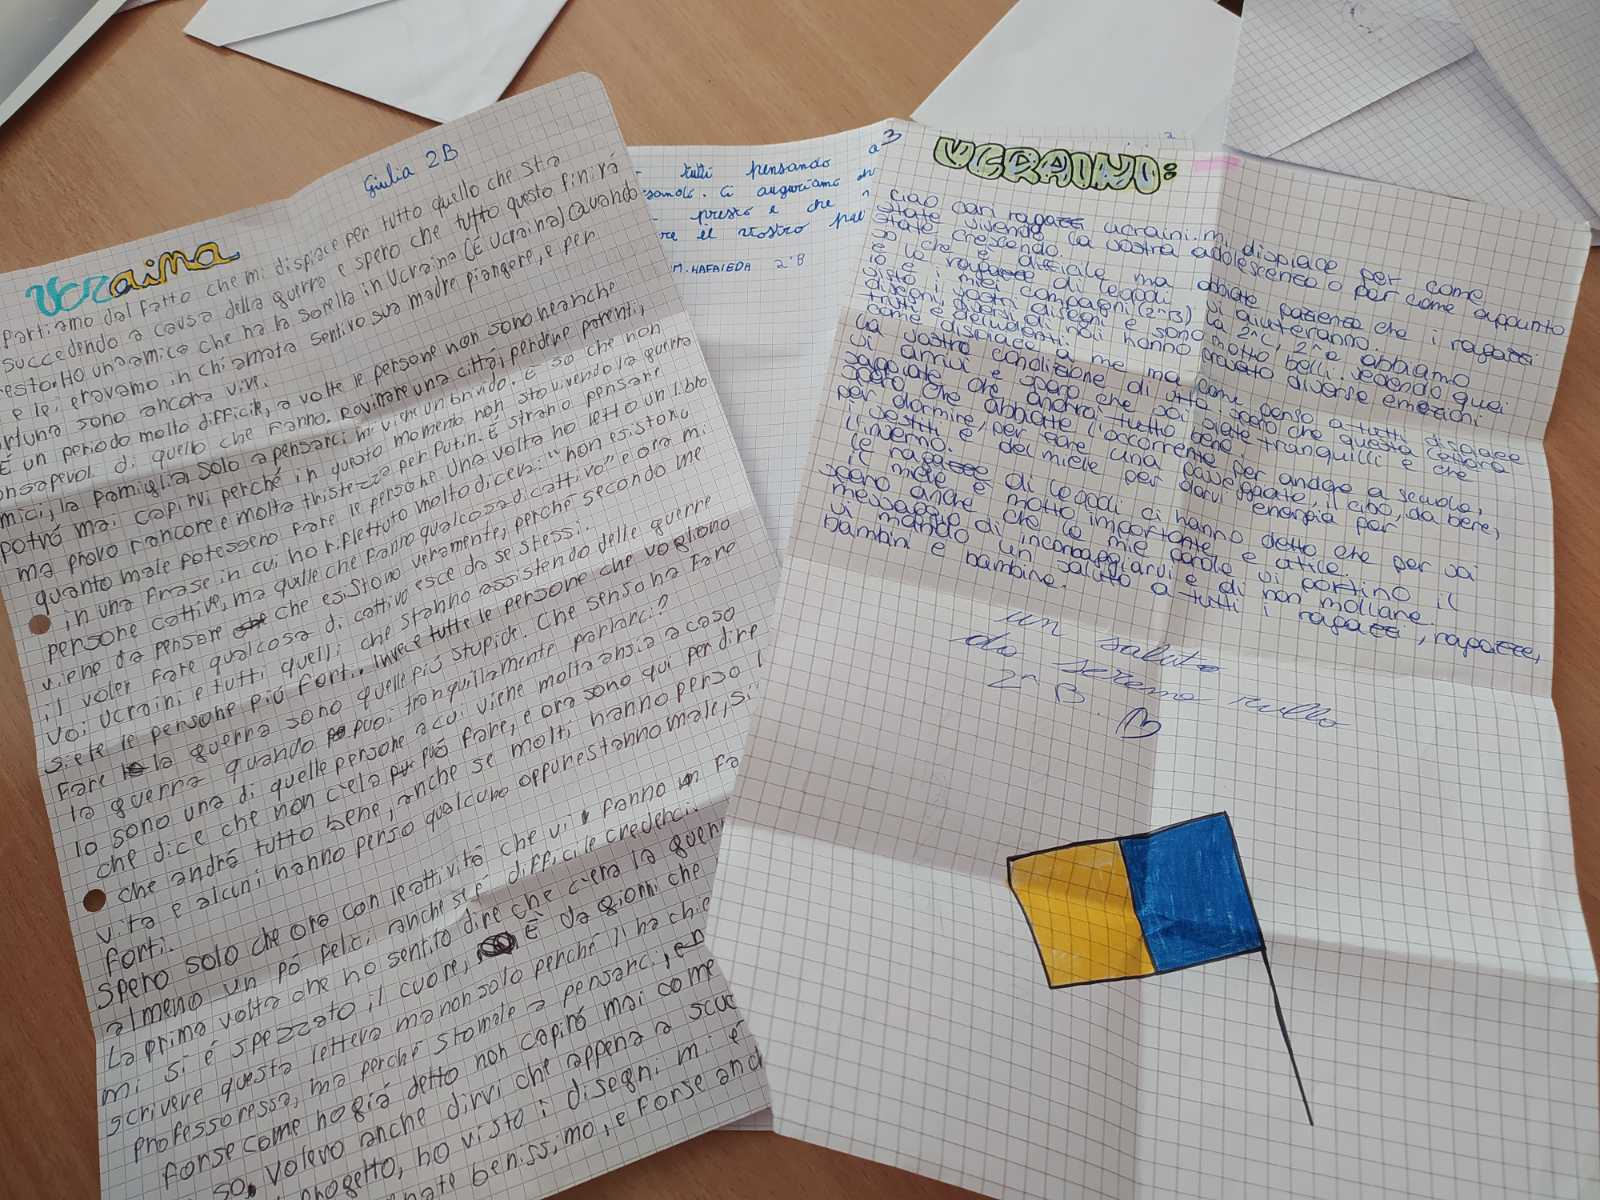 Giulia 2B
Ucraina
Partiamo dal fatto che mi dispiace per tutto quello che sta
succedendo a causa della guerra e spero che tutto questo finirà
resto. Ho un'amica che ha la sorella in Ucraina (È Ucraina) Quando
e lei eravamo in chiamata sentivo sua madre piangere, e per
rtuna sono ancora vivi.
È un periodo molto difficile, a volte le persone non sono neanche
onsapevoli di quello che fanno. Rovinare una città, perdere parenti,
mici, la famiglia, solo a pensarci mi viene un brivido. E so che non
potrò mai capirvi perché in questo momento non sto vivendo la guerra
ma provo rancore e molta tristezza per Putin. È strano pensare
quanto male potessero fare le persone. Una volta ho letto un libro
in una frase in cui ho riflettuto molto diceva: "non esistono
persone cattive, ma quelle che fanno qualcosa di cattivo" e ora mi
viene da pensare che esistono veramente, perché secondo me
il voler fare qualcosa di cattivo esce da se stessi.
Voi ucraini e tutti quelli che stanno assistendo delle guerre
siete le persone più forti. Invece tutte le persone che vogliono
fare la guerra sono quelle più stupide. Che senso ha fare
la guerra quando puoi tranquillamente parlarci?
Io sono una di quelle persone a cui viene molta ansia a caso
che dice che non ce la può fare, e ora sono qui per dire
che andrà tutto bene, anche se molti hanno perso l
vita e alcuni hanno perso qualcuno oppure stanno male, si
forti.
Spero solo che ora con le attività che vi fanno fa
almeno un pó felici, anche se è difficile crederci.
La prima volta che ho sentito dire che c'era la guerr
mi si è spezzato il cuore, È da giorni che
scrivere questa lettera ma non solo perché l'ha chie
professoressa, ma perché sto male a pensarci, e
forse come ho già detto non capirò mai come
so. Volevo anche dirvi che appena a scuo
progetto, ho visto i disegni mi è
nate benissimo, e forse anch
tutti pensando a
samolo. Ci auguriamo
presto e che
re il vostro
M. HAFAIEDA 2°B
3
UCRAINO:
Ciao cari ragazzi ucraini. mi dispiace per come
state vivendo la vostra adolescenza o per come appunto
state crescendo.
so che è difficile ma abbiate pazienza che i ragazzi
e le ragazze di legadi vi aiuteranno.
io e i miei compagni (2^B) la 2^C, 2^ abbiamo
visto i vostri disegni e sono molto belli. vedendo quei
disegni, diversi di noi hanno provato diverse emozioni
tristi e deludenti.
come dispiace a me ma come penso a tutti dispiace
la vostra condizione di vita, spero che questa lettera
vi arrivi e spero che voi siete tranquilli e che
sappiate che andrà tutto bene.
spero che abbiate l'occorrente per andare a scuola,
per dormire, per fare una passeggiata, il cibo, da bere,
i vestiti e del miele per darvi energia per
l'inverno.
le ragazze di legadi ci hanno detto che per voi
il miele è molto importante e utile.
spero anche che le mie parole vi portino il
messaggio di incoraggiarvi e di non mollare.
vi mando un saluto a tutti i ragazzi, ragazze,
bambini e bambine.
un saluto
da
2^ B.